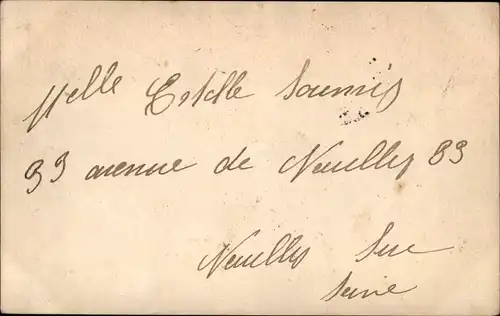 Melle Estelle Soumis
93 avenue de Neuilly 93
Neuilly Sur
Seine